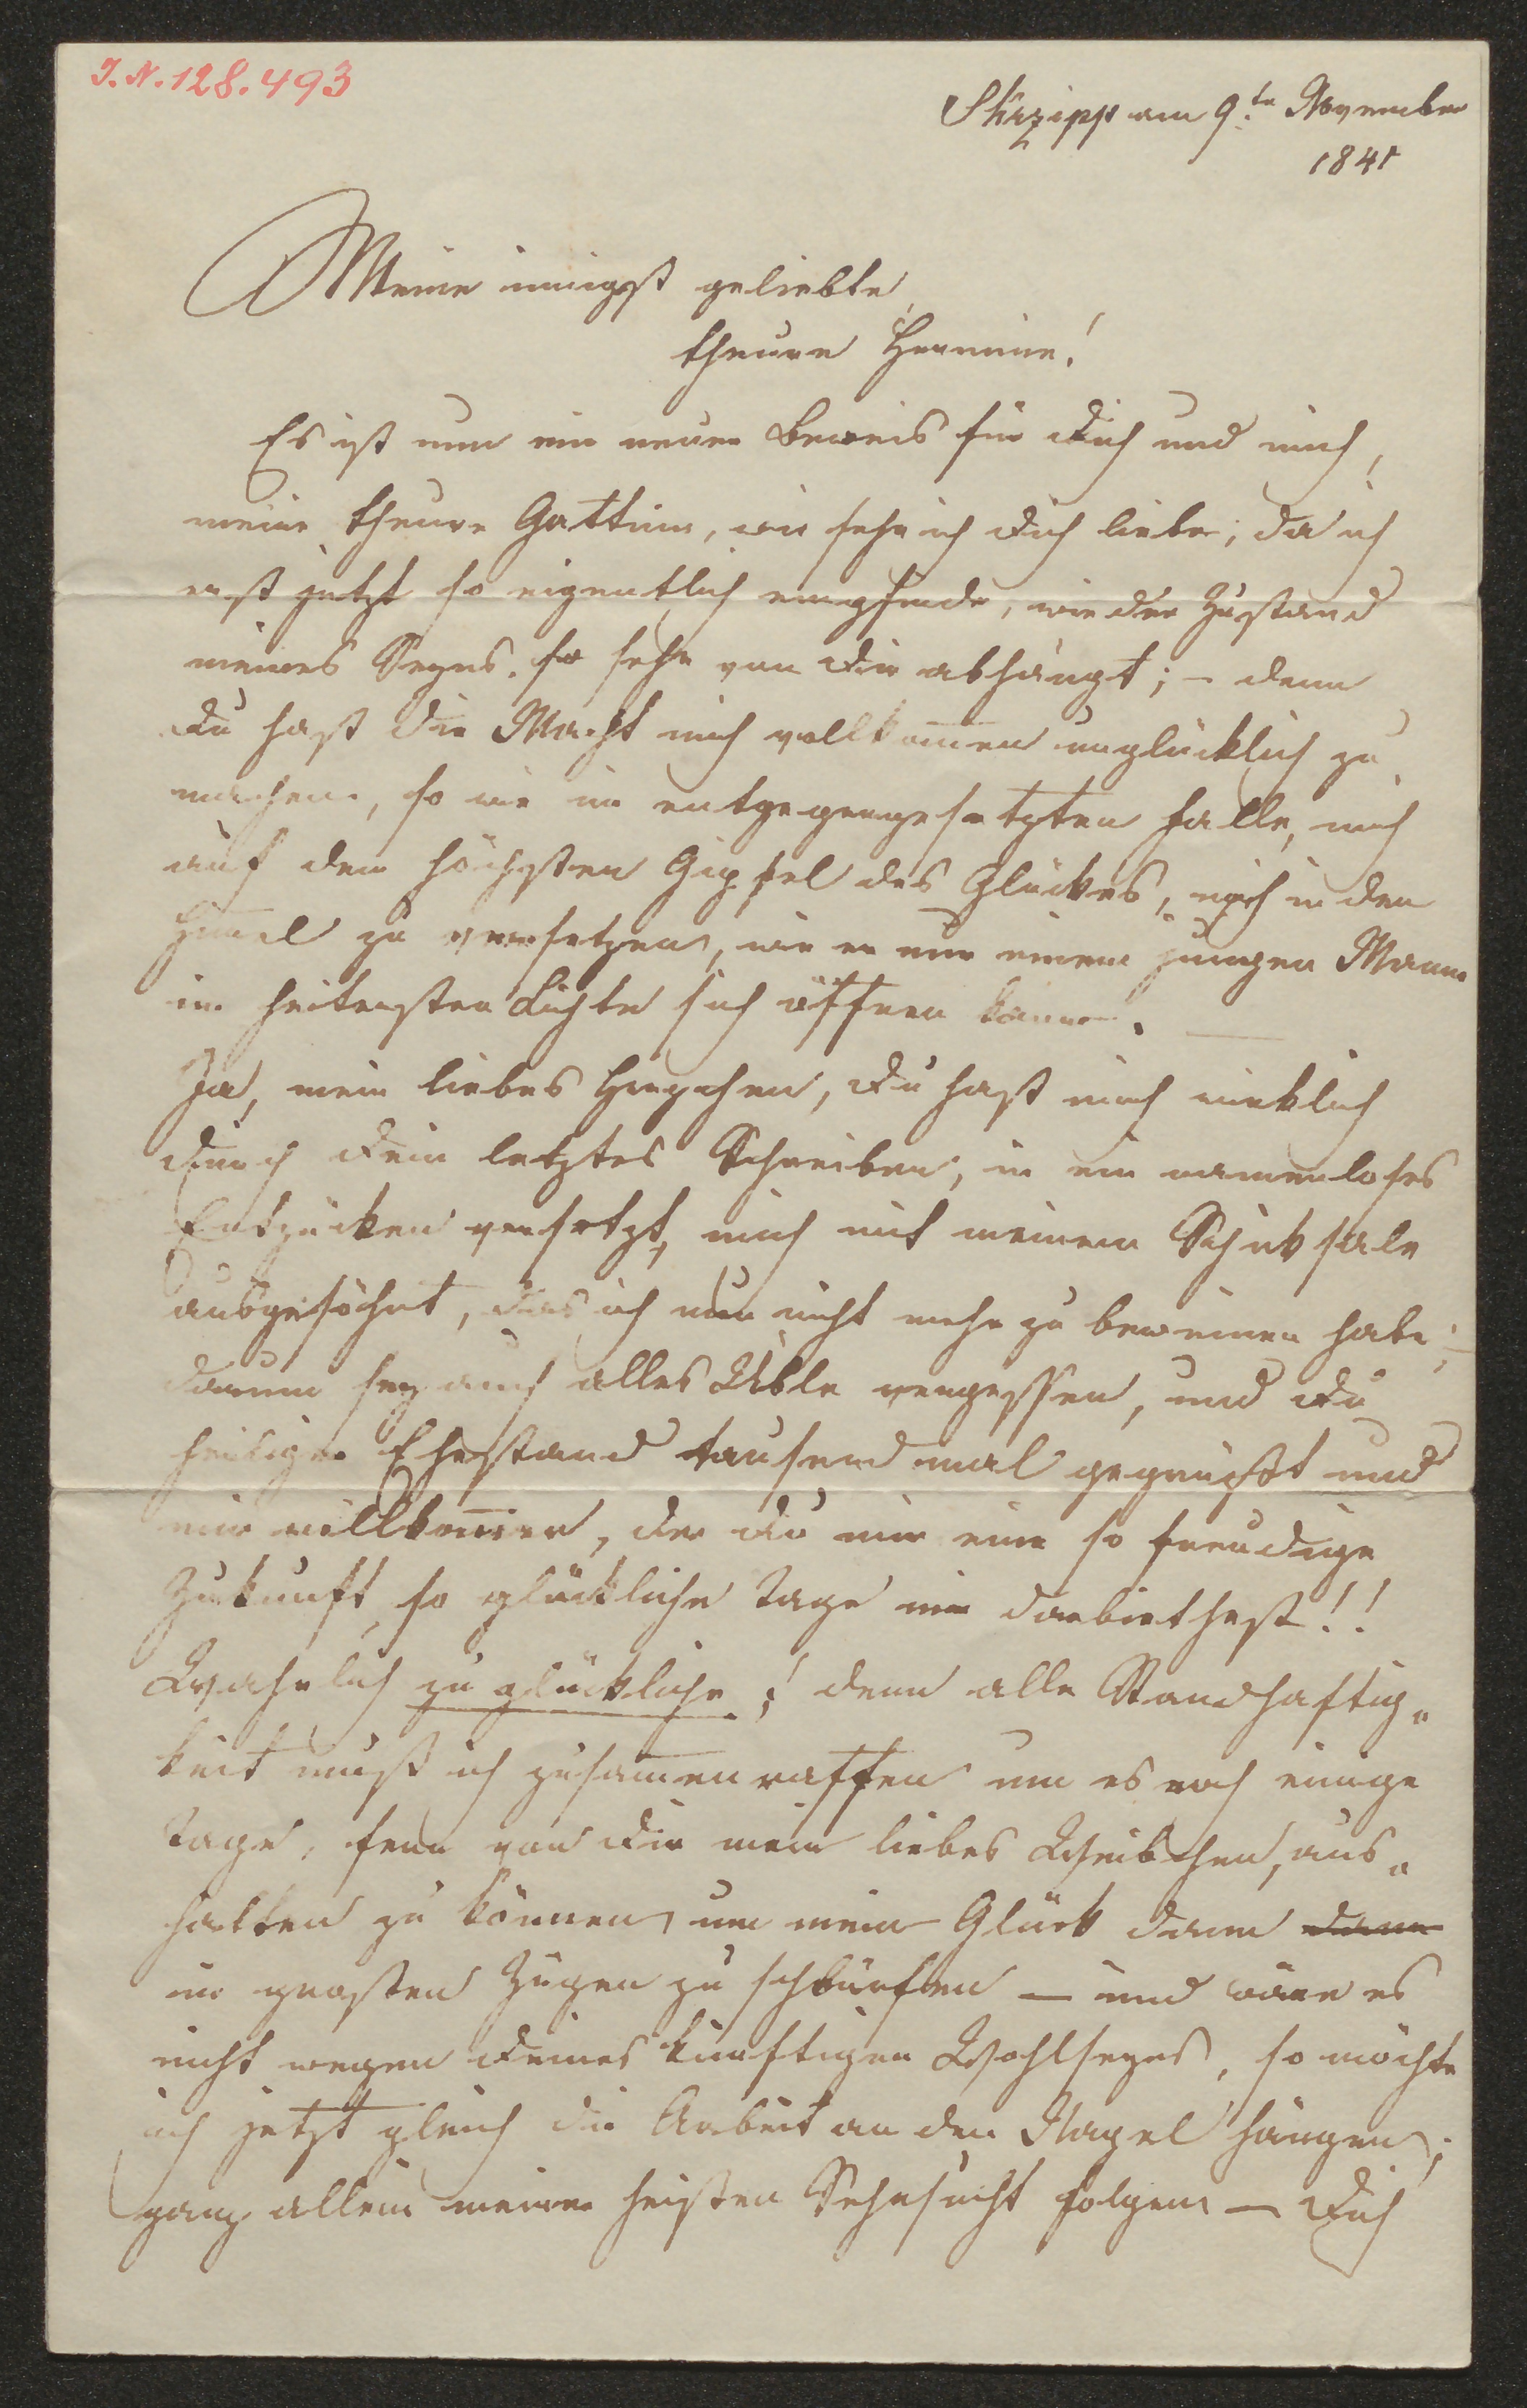 I. N. 128.493
Skrzipp am 9.te November
1841
Meine innigst geliebte,
theure Hermine!
Es ist nun ein neuer Beweis für Dich und mich,
meine theure Gattinn, wie sehr ich Dich liebe; da ich
erst jetzt so eigentlich empfinde, wie der Zustand
meines Seyns so sehr von Dir abhängt; – denn
Du hast die Macht mich vollkom̅en unglücklich zu
machen, so wie im entgegengesetzten Falle, mich
auf den höchsten Gipfel des Glückes, mich in den
Him̅el zu versetzen, wie er nur einem jungen Mann
im heitersten Lichte sich öffnen kann. —
Ja, mein liebes Herzchen, Du hast mich wirklich
durch Dein letztes Schreiben, in ein namenloses
Entzücken versetzt, mich mit meinem Schicksale
ausgesöhnt, das ich nun nicht mehr zu beweinen habe; –
darum sey auch alles Üble vergessen, und Du
heiliger Ehestand tausend mal gegrüßt und
mir willkom̅en, der Du mir eine so freudige
Zukunft, so glückliche Tage mir darbiethest!!
Wahrlich zu glückliche! denn alle Standhaftig„
keit muß ich zusam̅enraffen um es noch einige
Tage, fern von Dir mein liebes Weibchen, aus„
halten zu können, um mein Glück dann dann
in großen Zügen zu schlürfen — und wäre es
nicht wegen Deines künftigen Wohlseyns, so möchte
ich jetzt gleich die Arbeit an den Nagel hängen;
ganz allein meiner heißen Sehnsucht folgen — Dich